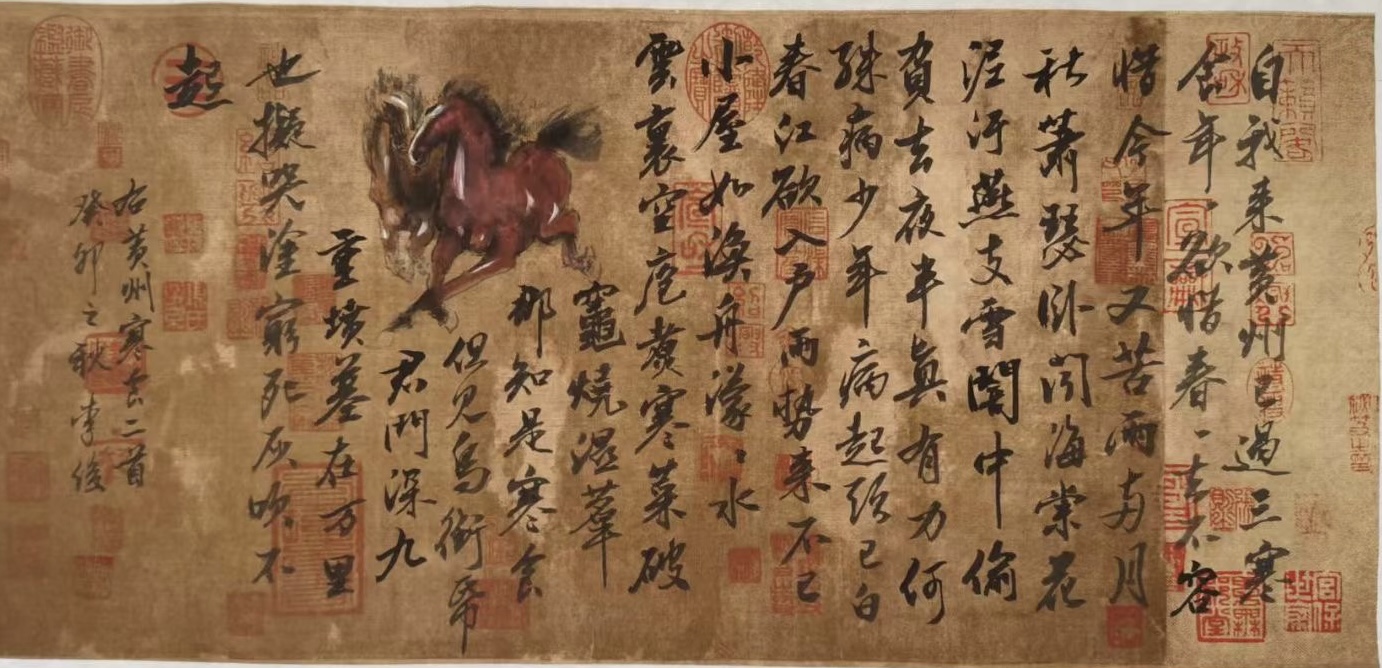 自我来黄州已過三寒
食年〻欲惜春〻去不容
惜今年又苦雨兩月
秋蕭瑟卧聞海棠花
泥汙燕支雪闇中偷
負去夜半真有力何
殊病少年病起頭已白
春江欲入户雨勢来不已
小屋如漁舟濛〻水
雲裏空庖煮寒菜破
竈燒濕葦
那知是寒食
但見烏銜帋
君門深九
重墳墓在万里
也擬哭塗窮死灰吹不
起
右黄州寒食二首
癸卯之秋 李俊
天籟閣